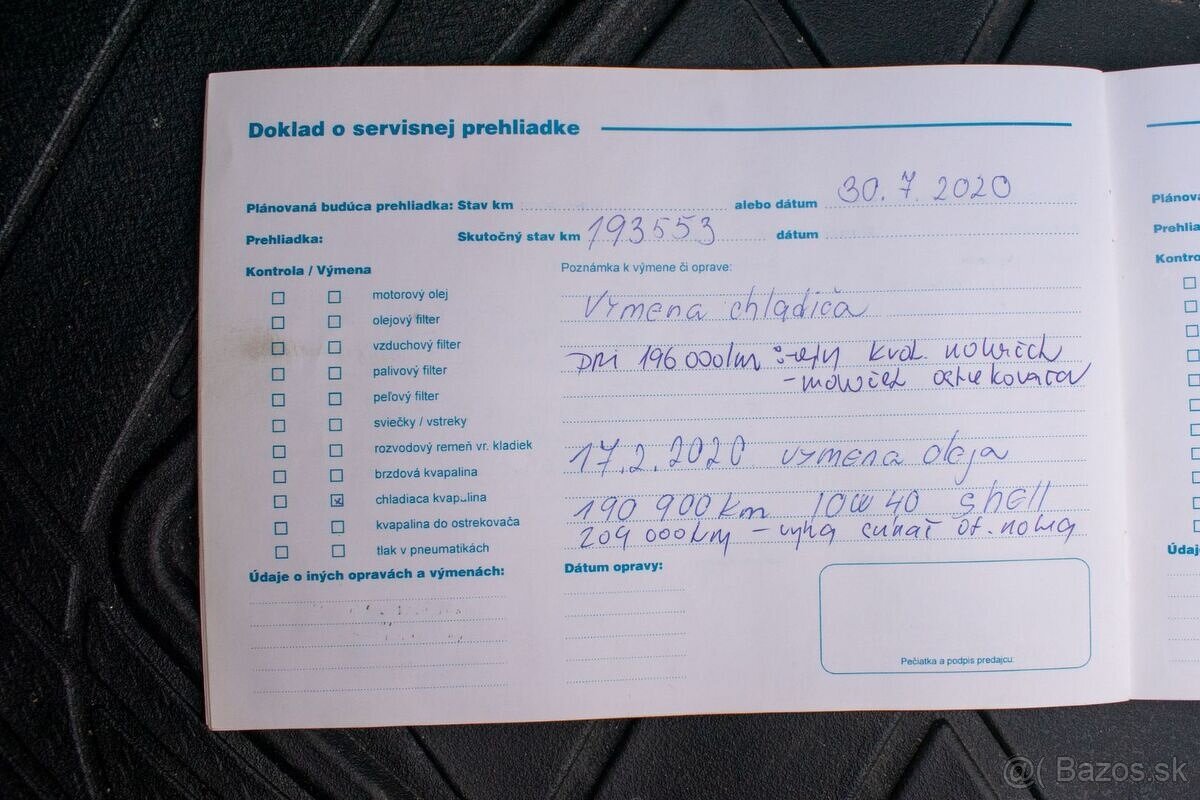 Doklad o servisnej prehliadke
Plánovaná budúca prehliadka: Stav km alebo dátum 30.7.2020
Prehliadka: Skutočný stav km 193553 dátum
Kontrola / Výmena
Poznámka k výmene či oprave:
motorový olej
olejový filter
vzduchový filter
palivový filter
peľový filter
sviečky / vstreky
rozvodový remeň vr. kladiek
brzdová kvapalina
chladiaca kvapalina
kvapalina do ostrekovača
tlak v pneumatikách
Výmena chladiča
pri 196 000km
17.2.2020 výmena oleja
190 900km 10W40 Shell
209 000km
Údaje o iných opravách a výmenách:
Dátum opravy:
Pečiatka a podpis predajcu:
Plánova
Prehlia
Kontro
Údaj
@( Bazos.sk